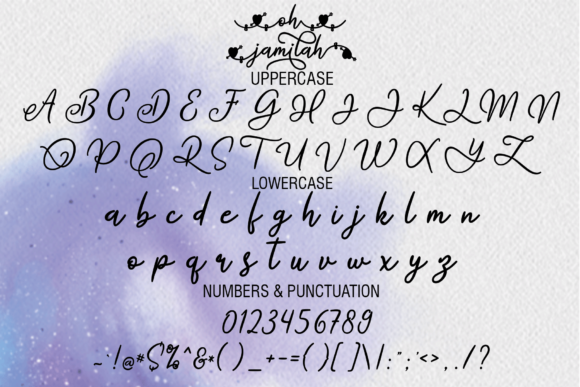 oh
jamilah
UPPERCASE
A B C D E F G H I J K L M N
O P Q R S T U V W X Y Z
LOWERCASE
a b c d e f g h i j k l m n
o p q r s t u v w x y z
NUMBERS & PUNCTUATION
0123456789
~`!@#$%^&*()_+-=()[]\|:";'<>,./?